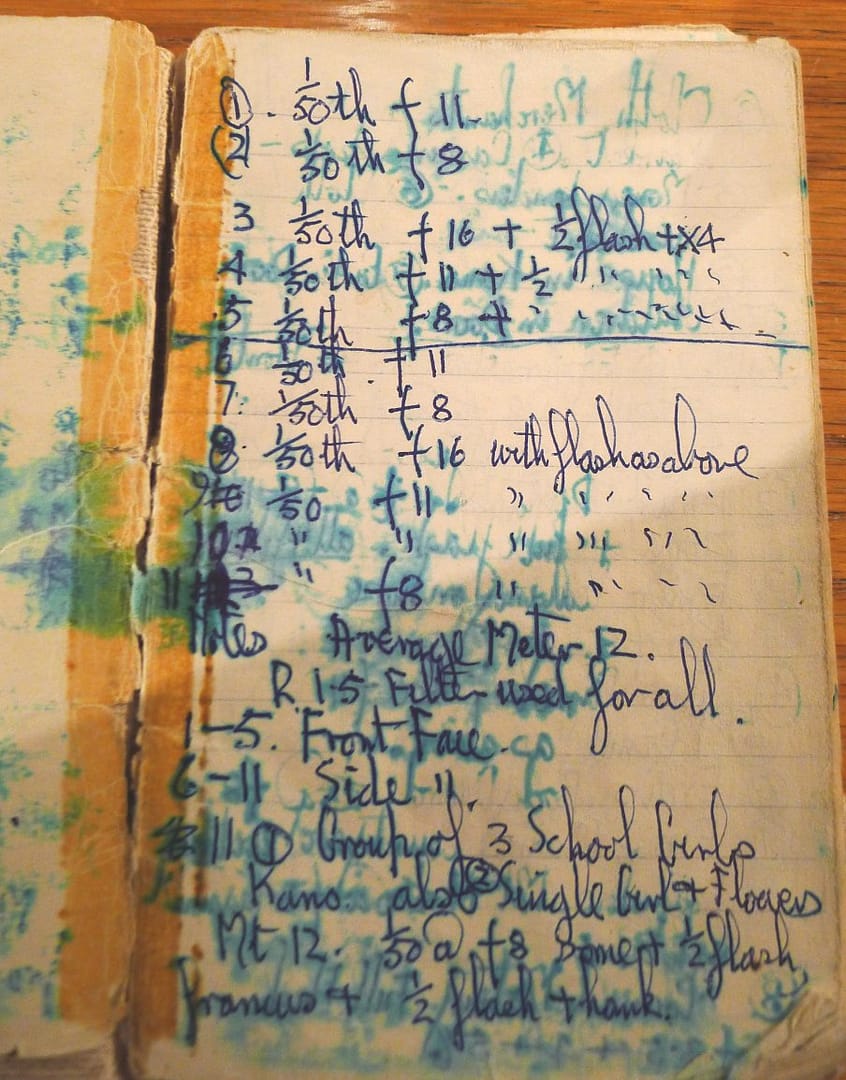 ① . 1/50th f 11.
② 1/50th f 8
3 1/50th f 16 + 1/2 flash + X4
4 1/50th f 11 + 1/2 " " " " "
5 1/50th f 8 + " " " " "
6 1/50th . f 11
7. 1/50th f 8
8. 1/50th f 16 with flash as above
9 1/50 f 11 " " " " "
10. " " " " " " "
11 " f 8 " " " "
Notes Average Meter 12.
R 1.5 Filter used for all.
1-5. Front Face.
6-11 Side ".
11 ① Group of 3 School Girls
Kano. also ② Single Girl + Flowers
Mt 12. 1/50 @ f8 Some + 1/2 flash
+ 1/2 flash + hank.